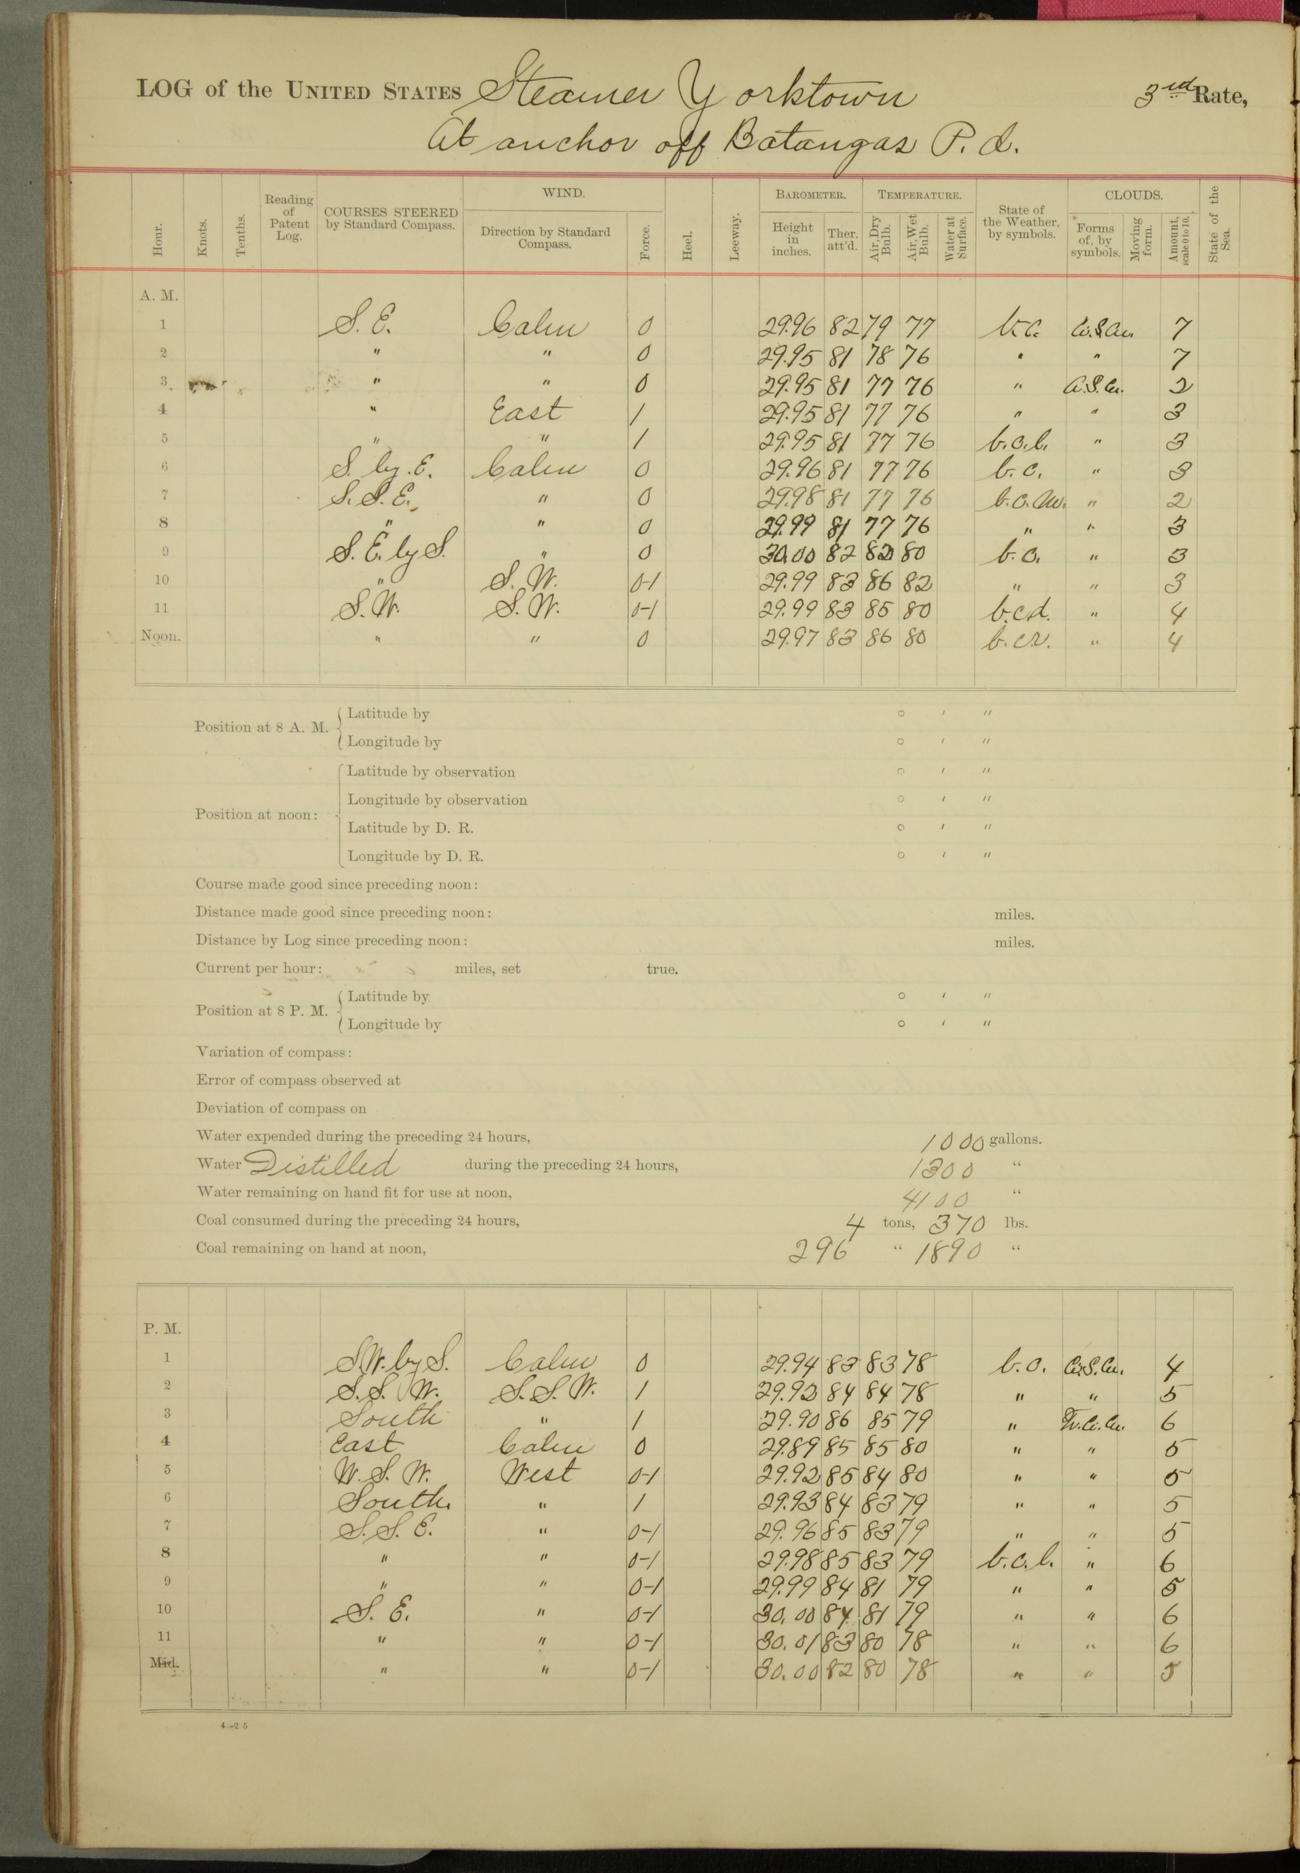 LOG of the UNITED STATES Steamer Yorktown 3rd Rate,
At anchor off Batangas P.I.
Hour. Knots. Tenths. Reading of Patent Log. COURSES STEERED by Standard Compass. WIND. Direction by Standard Compass. Force. Heel. Leeway. BAROMETER. Height in inches. Ther. att'd. TEMPERATURE. Air, Dry Bulb. Air, Wet Bulb. Water at Surface. State of the Weather, by symbols. CLOUDS. Forms of, by symbols. Moving form. Amount, scale 0 to 10. State of the Sea.
A. M.
1 S. E. Calm 0 29.96 82 79 77 b.c. Ci.S.Cu. 7
2 " " 0 29.95 81 78 76 " " 7
3 " " 0 29.95 81 77 76 " Ci.S.Cu. 2
4 " East 1 29.95 81 77 76 " " 3
5 " " 1 29.95 81 77 76 b.c.l. " 3
6 S. by. E. Calm 0 29.96 81 77 76 b.c. " 3
7 S. S. E. " 0 29.98 81 77 76 b.c.m. " 2
8 " " 0 29.99 81 77 76 " " 3
9 S. E. by S. " 0 30.00 82 82 80 b.c. " 3
10 " S. W. 0-1 29.99 83 86 82 " " 3
11 S. W. S. W. 0-1 29.99 83 85 80 b.c.d. " 4
Noon. " " 0 29.97 83 86 80 b.c.r. " 4
Position at 8 A. M. Latitude by ° ′ ″
Longitude by ° ′ ″
Position at noon: Latitude by observation ° ′ ″
Longitude by observation ° ′ ″
Latitude by D. R. ° ′ ″
Longitude by D. R. ° ′ ″
Course made good since preceding noon:
Distance made good since preceding noon: miles.
Distance by Log since preceding noon: miles.
Current per hour: miles, set true.
Position at 8 P. M. Latitude by ° ′ ″
Longitude by ° ′ ″
Variation of compass:
Error of compass observed at
Deviation of compass on
Water expended during the preceding 24 hours, 1000 gallons.
Water Distilled during the preceding 24 hours, 1300 "
Water remaining on hand fit for use at noon, 4100 "
Coal consumed during the preceding 24 hours, 4 tons, 370 lbs.
Coal remaining on hand at noon, 296 " 1890 "
P. M.
1 S.W. by S. Calm 0 29.94 83 83 78 b.c. Ci.S.Cu. 4
2 S. S. W. S. S. W. 1 29.92 84 84 78 " " 5
3 South " 1 29.90 86 85 79 " 6
4 East Calm 0 29.89 85 85 80 " " 5
5 W. S. W. West 0-1 29.92 85 84 80 " " 5
6 South. " 1 29.93 84 83 79 " " 5
7 S. S. E. " 0-1 29.96 85 83 79 " " 5
8 " " 0-1 29.98 85 83 79 b.c.l. " 6
9 " " 0-1 29.99 84 81 79 " " 5
10 S. E. " 0-1 30.00 84 81 79 " " 6
11 " " 0-1 30.01 83 80 78 " " 6
Mid. " " 0-1 30.00 82 80 78 " " 5
4—25